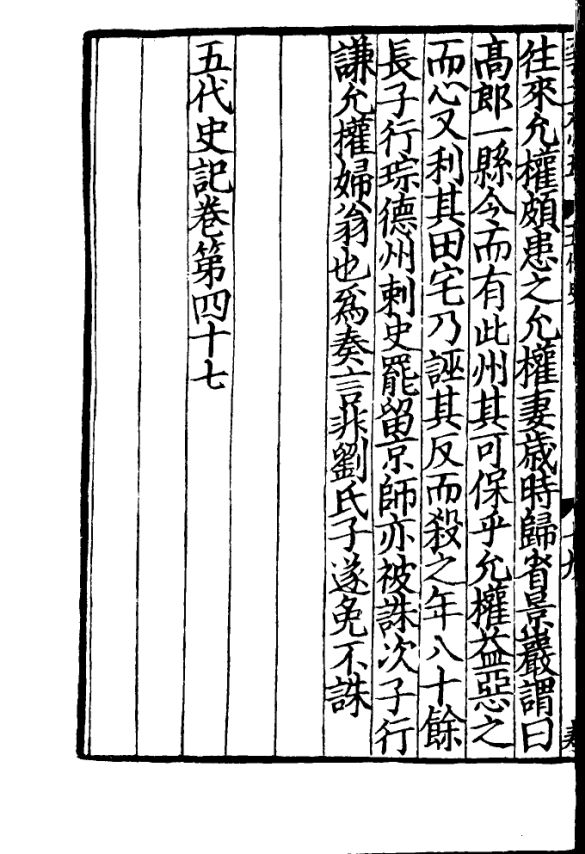 往來允權頗患之允權妻歲時歸省景巖謂曰
高郎一縣令而有此州其可保乎允權益惡之
而心又利其田宅乃誣其反而殺之年八十餘
長子行琮德州刺史罷留京師亦被誅次子行
謙允權婦翁也爲奏言非劉氏子遂免不誅
五代史記卷第四十七